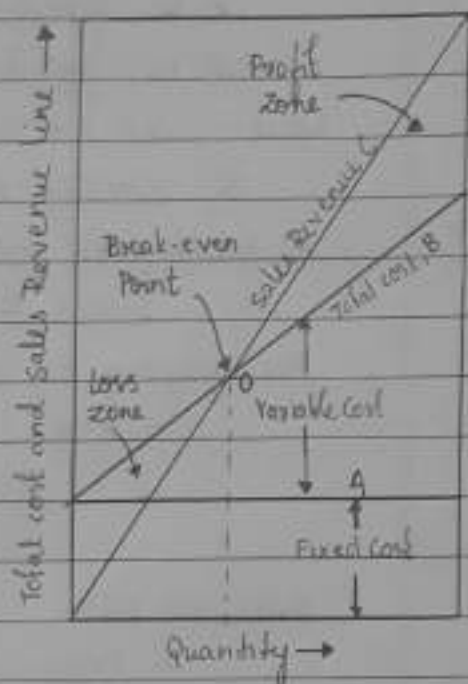 Total cost and Sales Revenue line →
Profit
Zone
Sales Revenue C
Break-even
Point
Total cost, B
Loss
zone
O
Variable Cost
A
Fixed Cost
Quantity →